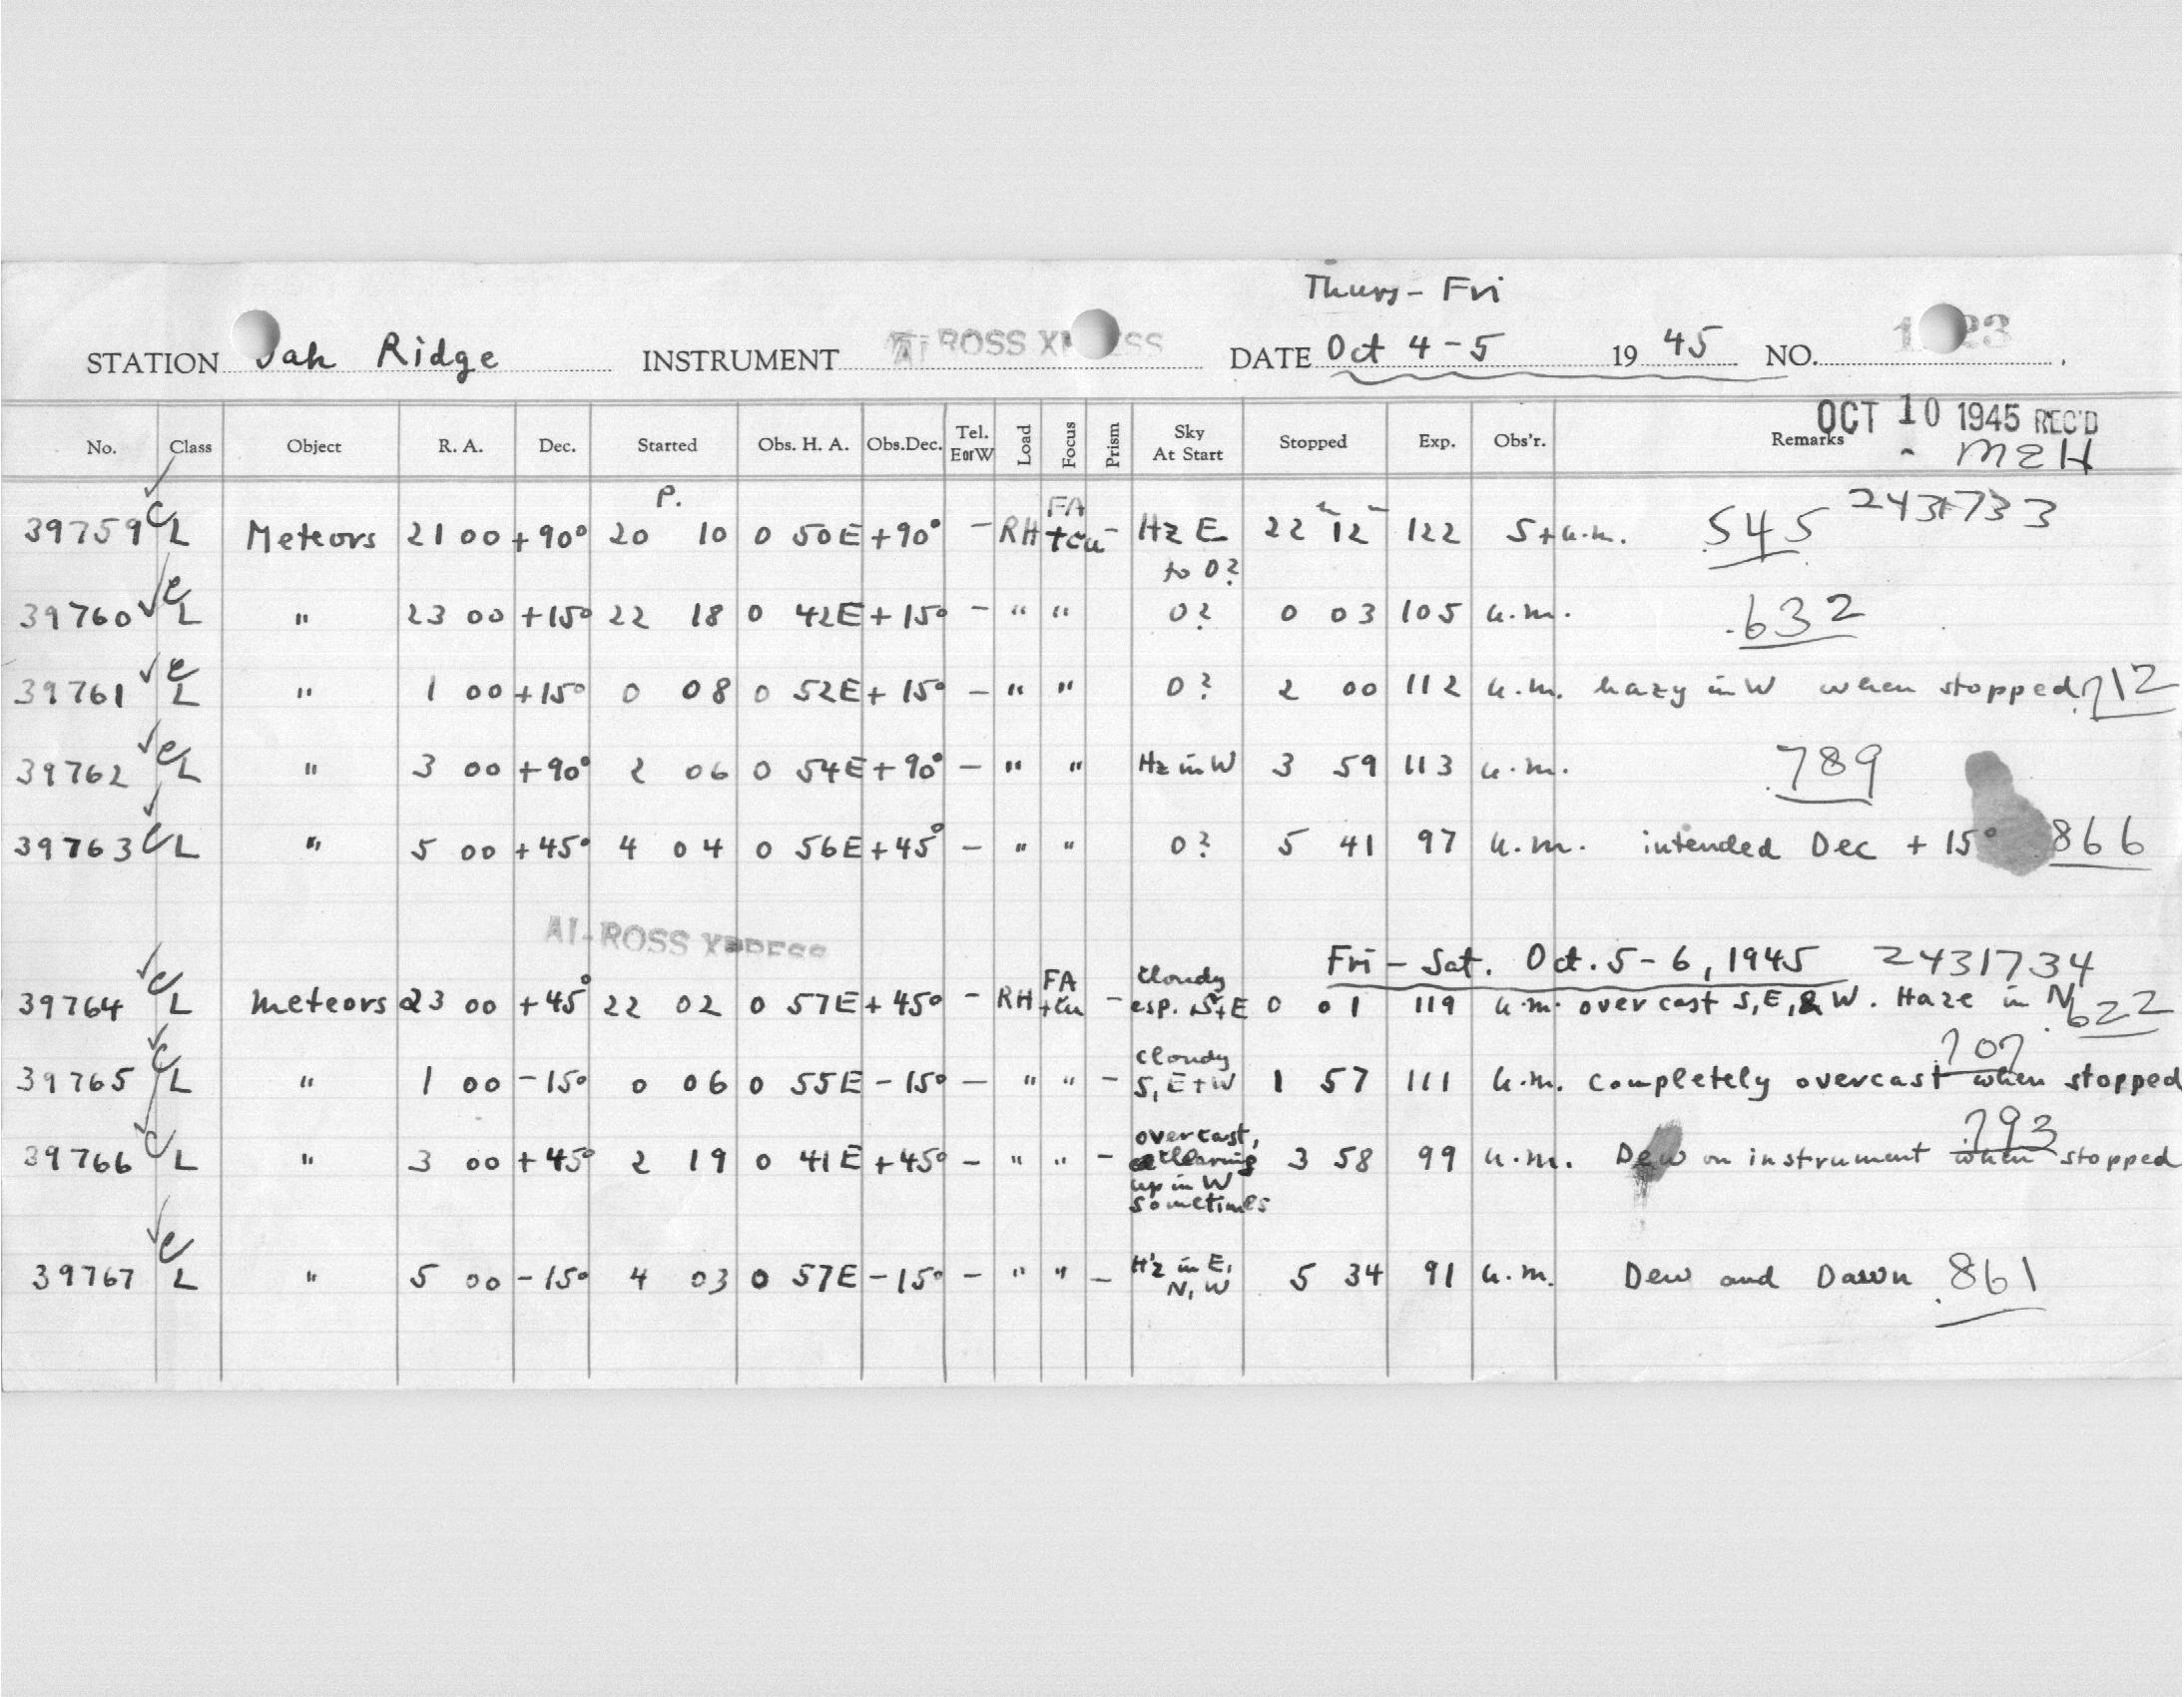 Thurs - Fri
STATION Oak Ridge INSTRUMENT AI-ROSS XPRESS DATE Oct 4-5 19 45 NO.
OCT 10 1945 REC'D
No. Class Object R. A. Dec. Started Obs. H. A. Obs.Dec. Tel. EorW Load Focus Prism Sky At Start Stopped Exp. Obs'r. Remarks
MEH
P. FA 2431733
39759 C L Meteors 21 00 +90° 20 10 0 50E +90° - RH +cu - Hz E 22 12 122 S+u.m. .545
to 0?
39760 C L " 23 00 +15° 22 18 0 42E +15° - " " 0? 0 03 105 u.m. .632
39761 C L " 1 00 +15° 0 08 0 52E +15° - " " 0? 2 00 112 u.m. hazy in W when stopped .712
39762 C L " 3 00 +90° 2 06 0 54E +90° - " " Hz in W 3 59 113 u.m. .789
39763 C L " 5 00 +45° 4 04 0 56E +45° - " " 0? 5 41 97 u.m. intended Dec +15° 866
AI-ROSS XPRESS
Fri - Sat. Oct. 5-6, 1945 2431734
FA cloudy
39764 C L Meteors 23 00 +45° 22 02 0 57E +45° - RH +cu - esp. S+E 0 01 119 u.m. overcast S, E, & W. Haze in N .622
cloudy .707
39765 C L " 1 00 -15° 0 06 0 55E -15° - " " - S, E+W 1 57 111 u.m. completely overcast when stopped
overcast, .793
39766 C L " 3 00 +45° 2 19 0 41E +45° - " " - clearing 3 58 99 u.m. Dew on instrument when stopped
up in W
sometimes
39767 C L " 5 00 -15° 4 03 0 57E -15° - " " - Hz in E, 5 34 91 u.m. Dew and Dawn .861
N, W